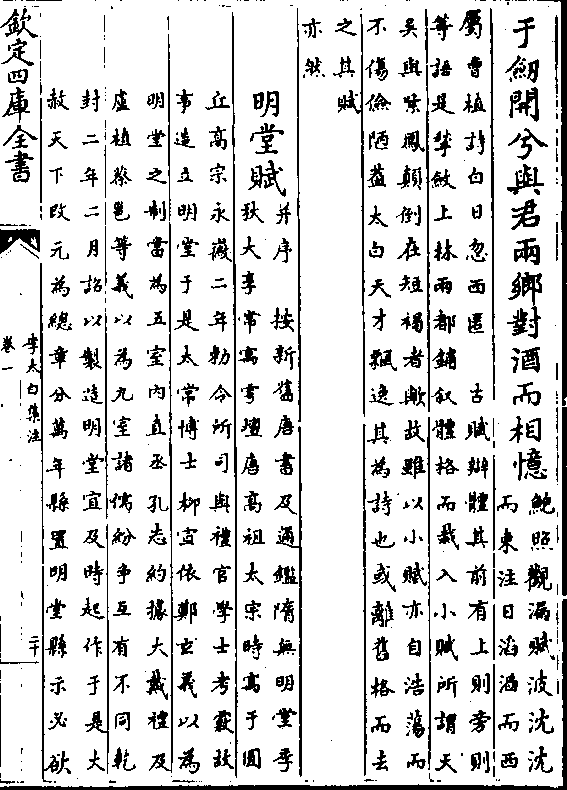 于剱開兮與君兩鄉對酒而相憶
鮑照觀漏賦波沈沈
而東注日滔滔而西
屬曹植詩白日忽西匿　古賦辯體其前有上則旁則
等語是掌斂上林兩都鋪叙體格而裁入小賦所謂天
吳與紫鳳顛倒在短褐者歟故雖以小賦亦自浩蕩而
不傷儉陋葢太白天才飄逸其為詩也或離舊格而去
之其賦
亦然
明堂賦
并序　按新舊唐書及通鑑隋無明堂季
秋大享常寓雩壇唐高祖太宗時寓于圜
丘高宗永徽二年勅令所司與禮官學士考覈故
事造立明堂于是太常博士柳宣依鄭玄義以為
明堂之制當為五室内直丞孔志約據大戴禮及
盧植蔡邕等義以為九室諸儒紛争互有不同乾
封二年二月詔以製造明堂宜及時起作于是大
赦天下改元為總章分萬年縣置明堂縣示必欲
欽定四庫全書
李太白集注
卷一
二十